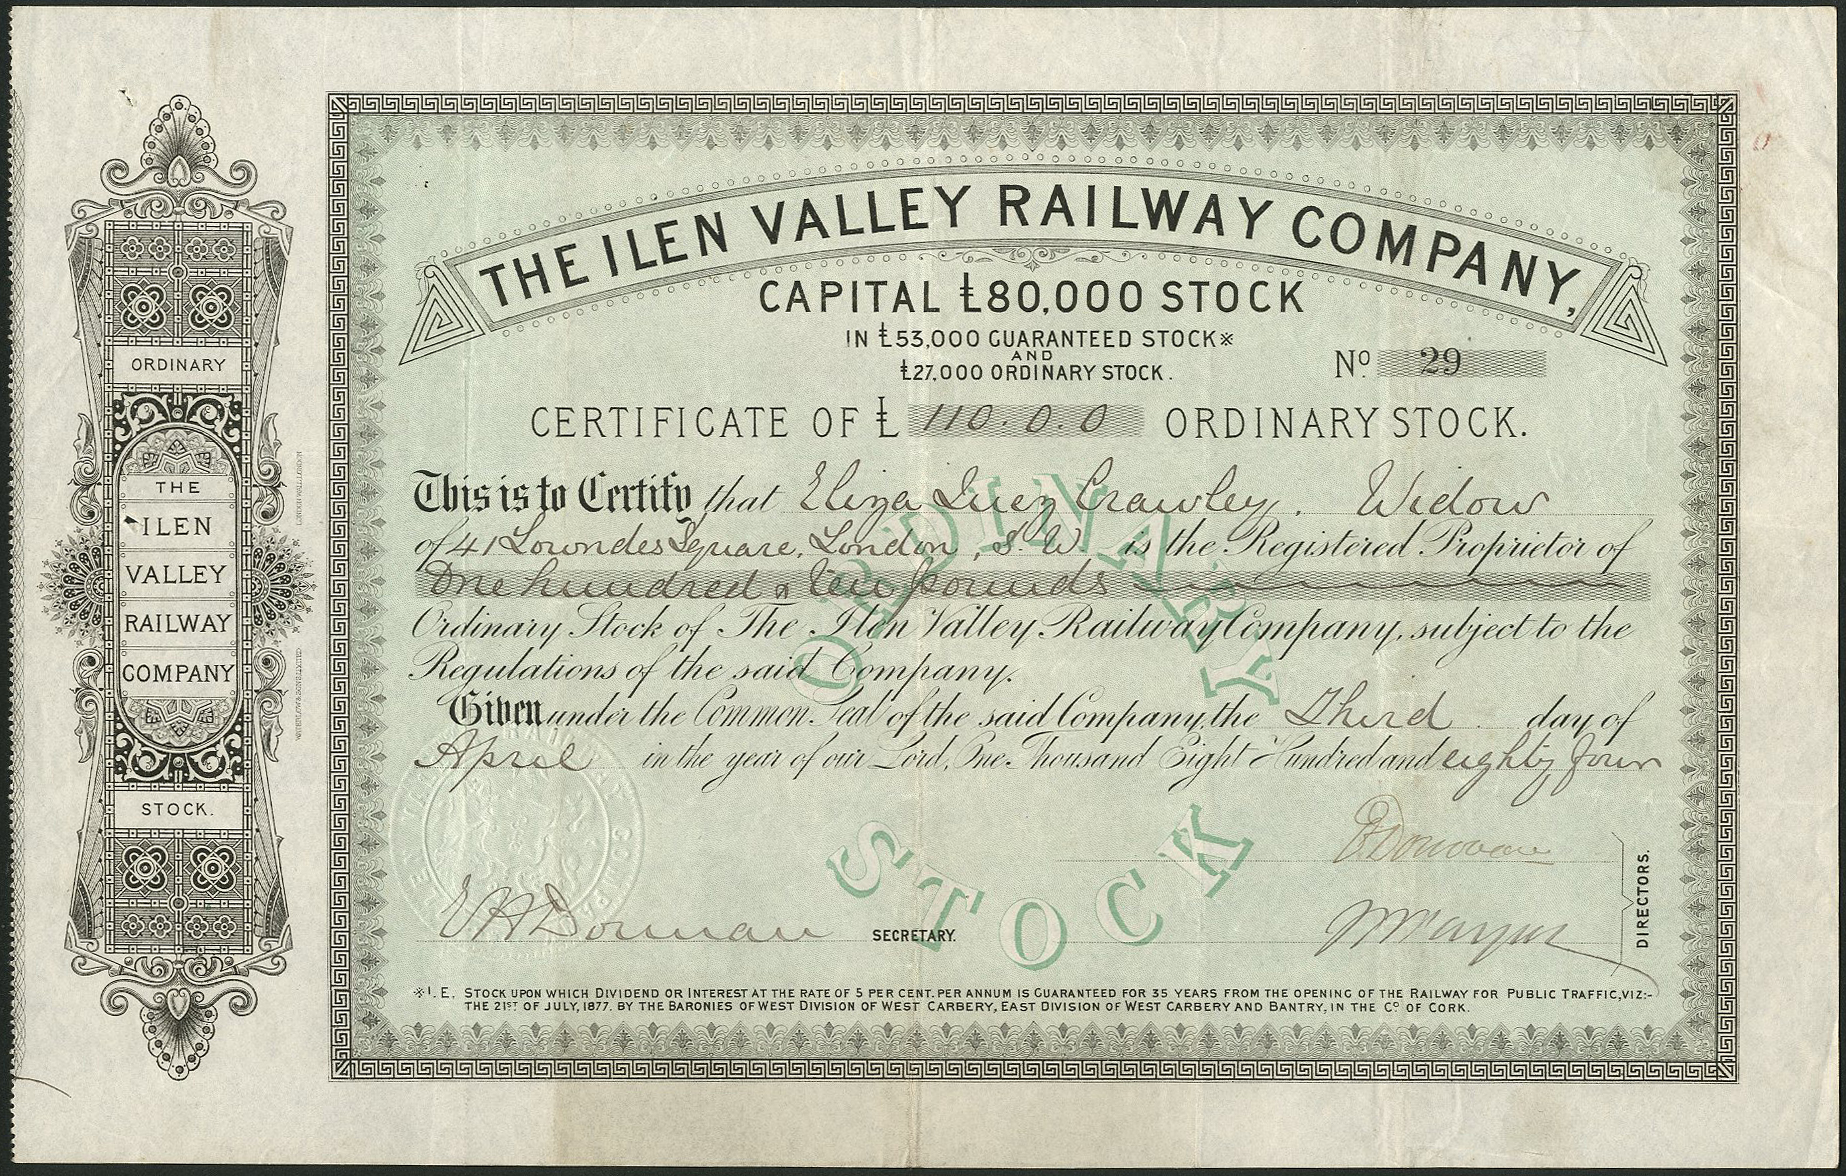 THE ILEN VALLEY RAILWAY COMPANY,
CAPITAL £80,000 STOCK
IN £53,000 GUARANTEED STOCK※
AND
£27,000 ORDINARY STOCK.
No. 29
CERTIFICATE OF £ 110.0.0 ORDINARY STOCK.
This is to Certify that Eliza Inez Crawley. Widow
of 41 Lowndes Square, London, S.W is the Registered Proprietor of
One hundred & ten pounds
Ordinary Stock of The Ilen Valley Railway Company, subject to the
Regulations of the said Company.
Given under the Common Seal of the said Company, the Third day of
April in the year of our Lord, One Thousand Eight Hundred and eighty four
ORDINARY
STOCK
E H Dorman SECRETARY.
Donovan
DIRECTORS.
※I.E. STOCK UPON WHICH DIVIDEND OR INTEREST AT THE RATE OF 5 PER CENT. PER ANNUM IS GUARANTEED FOR 35 YEARS FROM THE OPENING OF THE RAILWAY FOR PUBLIC TRAFFIC, VIZ:-
THE 21ST OF JULY, 1877. BY THE BARONIES OF WEST DIVISION OF WEST CARBERY, EAST DIVISION OF WEST CARBERY AND BANTRY, IN THE CO. OF CORK.
ORDINARY
THE
ILEN
VALLEY
RAILWAY
COMPANY
STOCK.